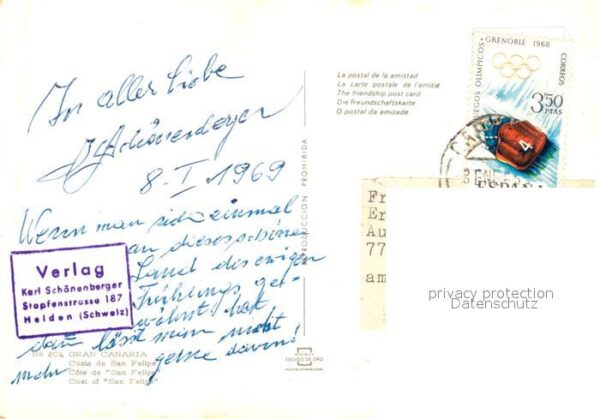 In aller Liebe
KSchönenberger
8-I 1969
Wenn man sich einmal
an dieses schöne
Land des ewigen
Frühlings ge-
wöhnt hat
dann lässt man nicht
mehr gerne davon!
Verlag
Karl Schönenberger
Stapfenstrasse 187
Heiden (Schweiz)
Nº 204 GRAN CANARIA
Costa de San Felipe
Côte de "San Felipe"
Cost of "San Felipe"
PRODUCCION PROHIBIDA
La postal de la amistad
La carte postale de l'amitié
The friendship post card
Die Freundschaftskarte
O postal da amizade
JUEGOS OLIMPICOS • GRENOBLE 1968
CORREOS
3'50
PTAS
4
ESPAÑA
Fr
Er
Au
77
am
privacy protection
Datenschutz